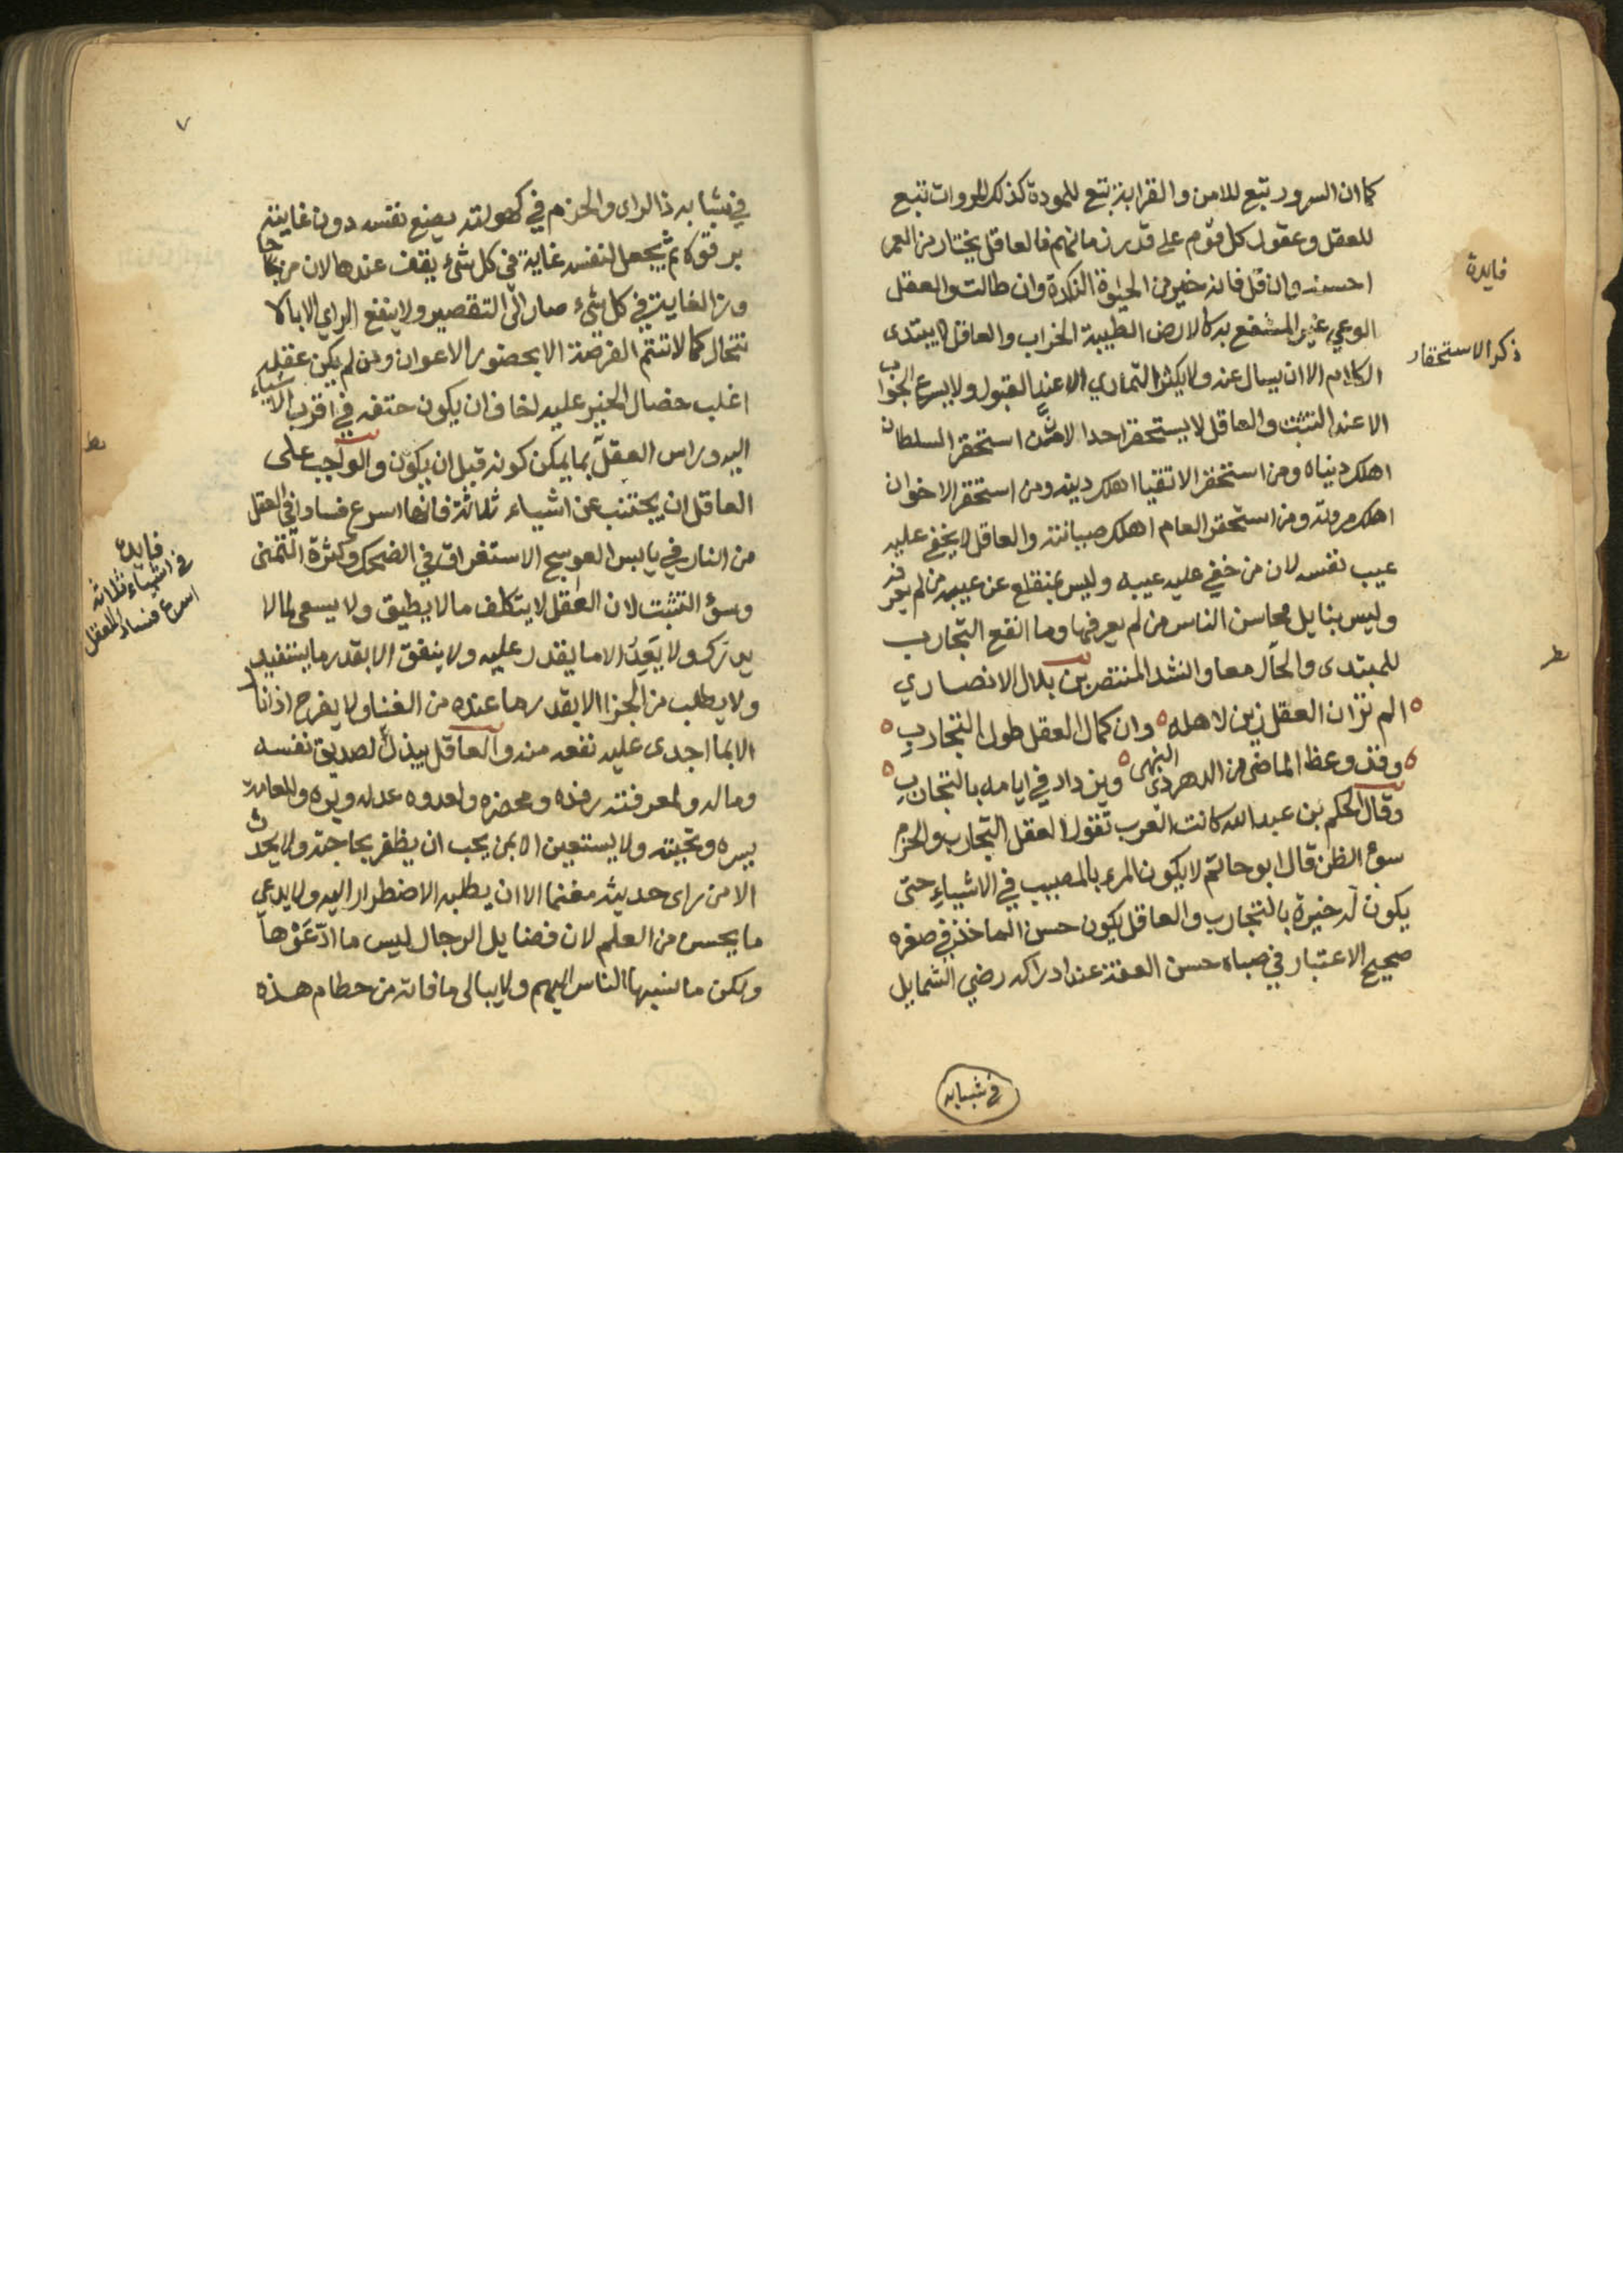 كما ان السرور تبع للامن والقرابة تبع للمودة كذلك المروات تبع
للعقل وعقول كل قوم على قدر زمانهم فالعاقل يختار من العمر
احسنه وان قل فانه خير من الحيوة النكدة وان طالت والعقل
الوعي غير المنتفع به كالارض الطيبة الخراب والعاقل لا يبتدى
الكلام الا ان يسال عنه ولا يكثر التماري الا عند القبول ولا يسرع الجواب
الا عند التثبت والعاقل لا يستحقر احدا لان من استحقر السلطان
اهلك دنياه ومن استحقر الاتقيا اهلك دينه ومن استحقر الاخوان
اهلك مروته ومن استحقر العام اهلك صيانته والعاقل لا يخفى عليه
عيب نفسه لان من خفي عليه عيبه وليس بمنقلع عن عيبه من لم يعرفه
وليس بنايل محاسن الناس من لم يعرفها وما انفع التجارب
للمبتدى والحال معا وانشد المنتصر بن بلال الانصاري
الم تر ان العقل زين لاهله وان كمال العقل طول التجارب
وقد وعظ الماضي من الدهر ذى النهى ويزداد في ايامه بالتجارب
وقال الحكم بن عبد الله كانت العرب تقول العقل التجارب والحزم
سوء الظن قال ابو حاتم لا يكون المرء بالمصيب في الاشياء حتى
يكون له خبرة بالتجارب والعاقل يكون حسن الماخذ في صغره
صحيح الاعتبار في صباه حسن العفة عند ادراكه رضي الشمايل
في شبابه
فايدة
ذكر الاستحقار
٧
في شبابه ذا الراى والحزم في كهولته يضع نفسه دون غايته
برتوة ثم يجعل لنفسه غاية في كل شىء يقف عندها لان من جا
وز الغاية في كل شىء صار الى التقصير ولا ينفع الراي الا بالا
نتحال كما لا تتم الفرصة الا بحضور الاعوان ومن لم يكن عقله
اغلب خصال الخير عليه لخاف ان يكون حتفه في اقرب الاشياء
اليه وراس العقل بما يمكن كونه قبل ان يكون والواجب على
العاقل ان يجتنب عن اشياء ثلاثة فانها اسرع فسادا في العقل
من النار في يابس العوسج الاستغراق في الضحك وكثرة التمنى
وسوء التثبت لان العقل لا يتكلف ما لا يطيق ولا يسعى لما لا
يدرك ولا يعد الا ما يقدر عليه ولا ينفق الا بقدر ما يستفيد
ولا يطلب من الجزا الا بقدر ما عنده من الغنا ولا يفرح اذا نا
الا بما اجدى عليه نفعه منه والعاقل يبذل لصديقه نفسه
وماله ولمعرفته رفده ومحضره ولعدوه عدله وبره وللعامة
بشره وتحيته ولا يستعين الا بمن يحب ان يظفر بحاجته ولا يحدث
الا من راى حديثه مغنما الا ان يطلبه الاضطرار اليه ولا يدعى
ما يحسن من العلم لان فضايل الرجال ليس ما ادعوها
ولكن ما نسبها الناس اليهم ولا يبالى ما فاته من حطام هذه
فايدة
في اشياء ثلاثة
اسرع فساد العقل